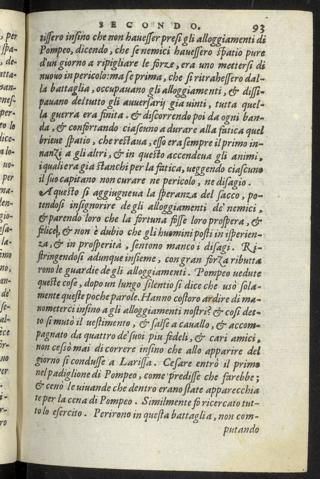 SECONDO. 93
tissero insino che non hauesser presi gli alloggiamenti di
Pompeo, dicendo, che se nemici hauessero spatio pure
d'un giorno a ripigliare le forze, era uno mettersi di
nuouo in pericolo: ma se prima, che si ritrahessero dal-
la battaglia, occupauano gli alloggiamenti, & dissi-
pauano deltutto gli auuersarij gia uinti, tutta quel-
la guerra era finita. & discorrendo poi da ogni ban-
da, & confortando ciascuno a durare alla fatica quel
brieue spatio, che restaua, esso era sempre il primo in-
nanzi a gli altri, & in questo accendeua gli animi,
i quali era gia stanchi per la fatica, ueggendo ciascuno
il suo capitano non curare ne pericolo, ne disagio.
A questo si aggiugneua la speranza del sacco, po-
tendosi insignorire de gli alloggiamenti de' nemici,
& parendo loro che la fortuna fosse loro prospera, &
felice, & non è dubio che gli huomini posti in isperien-
za, & in prosperità, sentono manco i disagi. Ri-
stringendosi adunque insieme, con gran forza ributta
rono le guardie de gli alloggiamenti. Pompeo uedute
queste cose, dopo un lungo silentio si dice che usò sola-
mente queste poche parole. Hanno costoro ardire di ma-
nometterci insino a gli alloggiamenti nostri? & cosi det-
to si mutò il uestimento, & salse a cauallo, & accom-
pagnato da quattro de' suoi piu fedeli, & cari amici,
non cessò mai di correre insino che allo apparire del
giorno si condusse a Larissa. Cesare entrò il primo
nel padiglione di Pompeo, come predisse che farebbe;
& cenò le uiuande che dentro erano state apparecchia
te per la cena di Pompeo. Similmente fò ricercato tut-
to lo esercito. Perirono in questa battaglia, non com-
putando